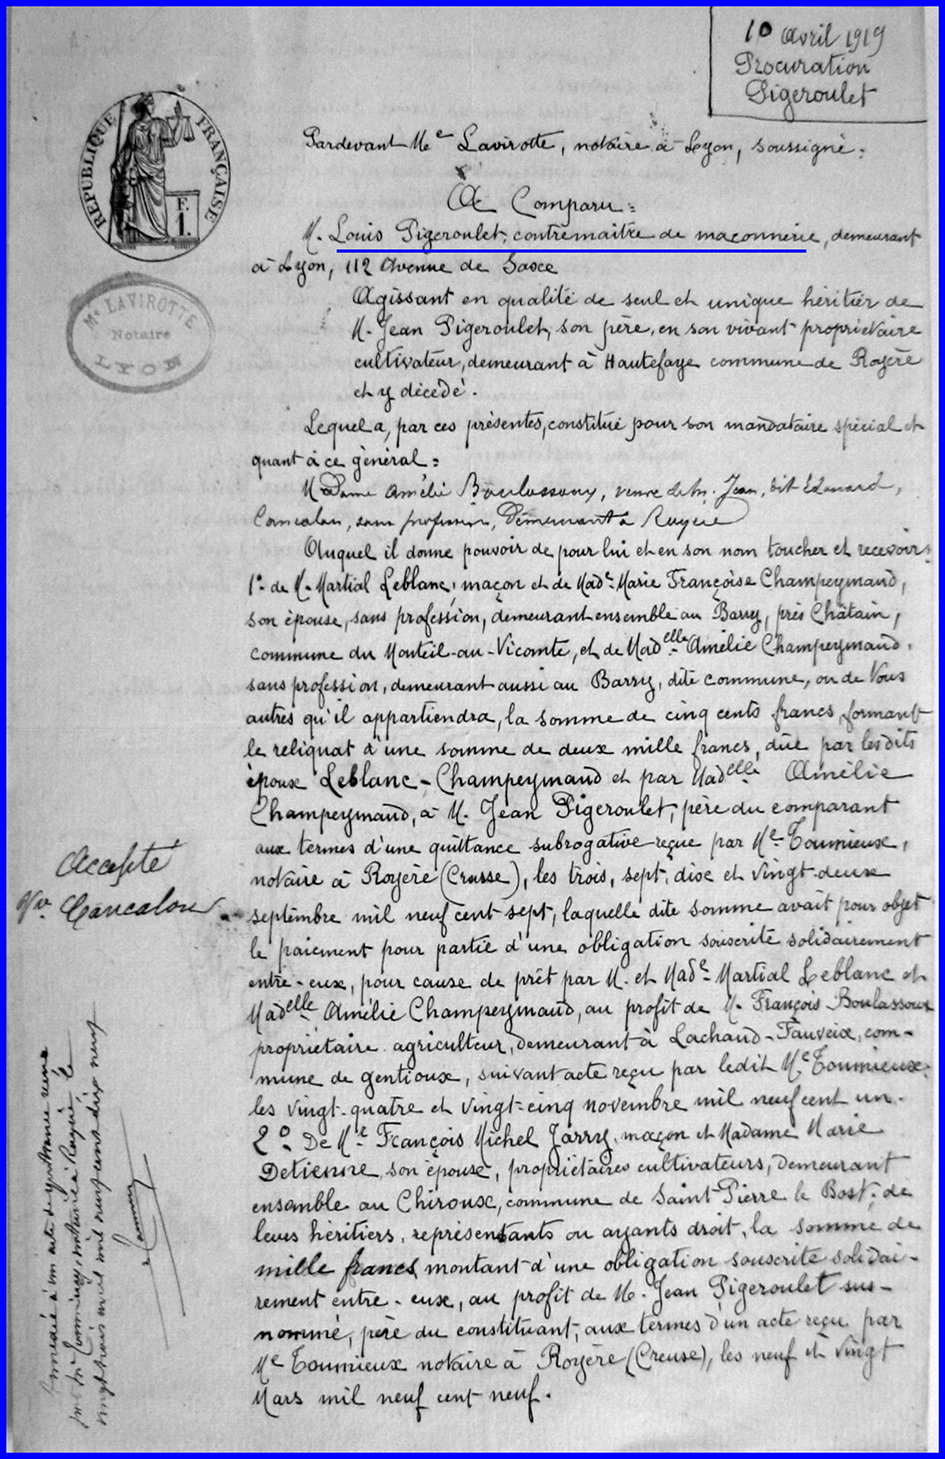 10 Avril 1919
Procuration
Pigeroulet
RÉPUBLIQUE FRANÇAISE
F.
1.
Me LAVIROTTE
Notaire
LYON
Pardevant Me Lavirotte, notaire à Lyon, soussigné:
A Comparu:
M. Louis Pigeroulet, contremaitre de maçonnerie, demeurant
à Lyon, 112 Avenue de Saxe
Agissant en qualité de seul et unique héritier de
M. Jean Pigeroulet, son père, en son vivant propriétaire
cultivateur, demeurant à Hautefaye commune de Royère
et y décédé.
Lequel a, par ces présentes, constitué pour son mandataire spécial et
quant à ce général:
Madame Amélie Boulassoux, veuve de M. Jean, dit Edouard,
Cancalon, sans profession, demeurant à Royère
Auquel il donne pouvoir de pour lui et en son nom toucher et recevoir:
1º de M. Martial Leblanc, maçon et de Made Marie Françoise Champeymaud,
son épouse, sans profession, demeurant ensemble au Barry, près Châtain,
commune du Monteil-au-Vicomte, et de Madelle Amélie Champeymaud,
sans profession, demeurant aussi au Barry, dite commune, ou de tous
autres qu'il appartiendra, la somme de cinq cents francs, formant
le reliquat d'une somme de deux mille francs, düe par lesdits
époux Leblanc-Champeymaud et par Madelle Amélie
Champeymaud, à M. Jean Pigeroulet, père du comparant
aux termes d'une quittance subrogative reçue par Me Toumieux,
notaire à Royère (Creuse), les trois, sept, dix et vingt-deux
septembre mil neuf cent sept, laquelle dite somme avait pour objet
le paiement pour partie d'une obligation souscrite solidairement
entre-eux, pour cause de prêt par M. et Made Martial Leblanc et
Madelle Amélie Champeymaud, au profit de M. François Boulassoux
propriétaire agriculteur, demeurant à Lachaud-Fauveix, com-
mune de gentioux, suivant acte reçu par ledit Me Toumieux
les vingt-quatre et vingt-cinq novembre mil neuf cent un.
2º De M. François Michel Jarry, maçon et Madame Marie
Detienne, son épouse, propriétaires cultivateurs, demeurant
ensemble au Chiroux, commune de Saint-Pierre le Bost, de
leurs héritiers, représentants ou ayants droit, la somme de
mille francs, montant d'une obligation souscrite solidai-
rement entre-eux, au profit de M. Jean Pigeroulet sus-
nommé, père du constituant, aux termes d'un acte reçu par
Me Toumieux notaire à Royère (Creuse), les neuf et vingt
Mars mil neuf cent neuf.
Accepté
Vve Cancalon
Annexé à un acte de quittance reçue
par Me Toumieux, notaire à Royère le
vingt trois mai mil neuf cent dix neuf